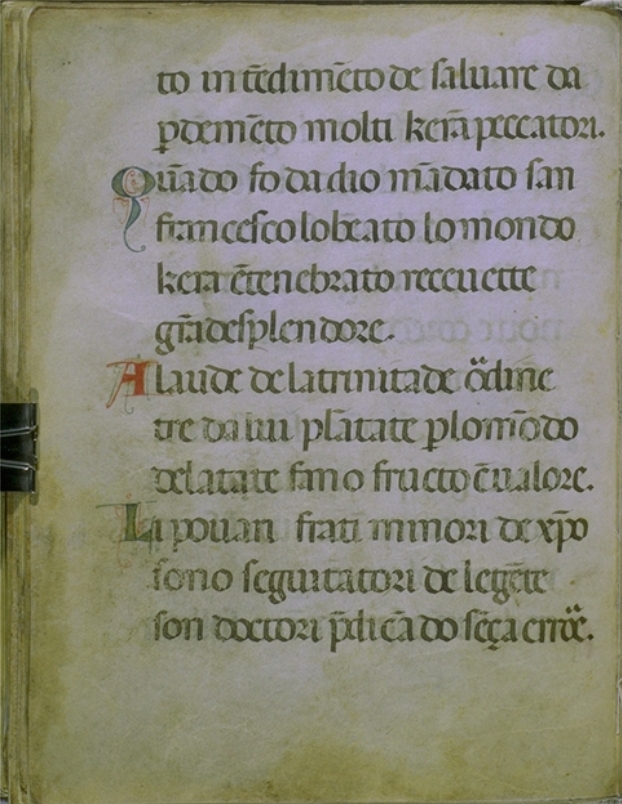 to in tēdimēto de saluare da
p̄demēto molti kerāpeccatori.
Quādo fo dadio mādato san
francesco lobeato lo mondo
kera ētenebrato receuette
grādesplendore.
A laude de latrinitade ördine
tre da lui plātate p̄lomōdo
delatate fano fructo cūalore.
Li pouari frati minori de xp̄o
sono seguitatori de legēte
son doctori p̄dicādo sēça erröe.